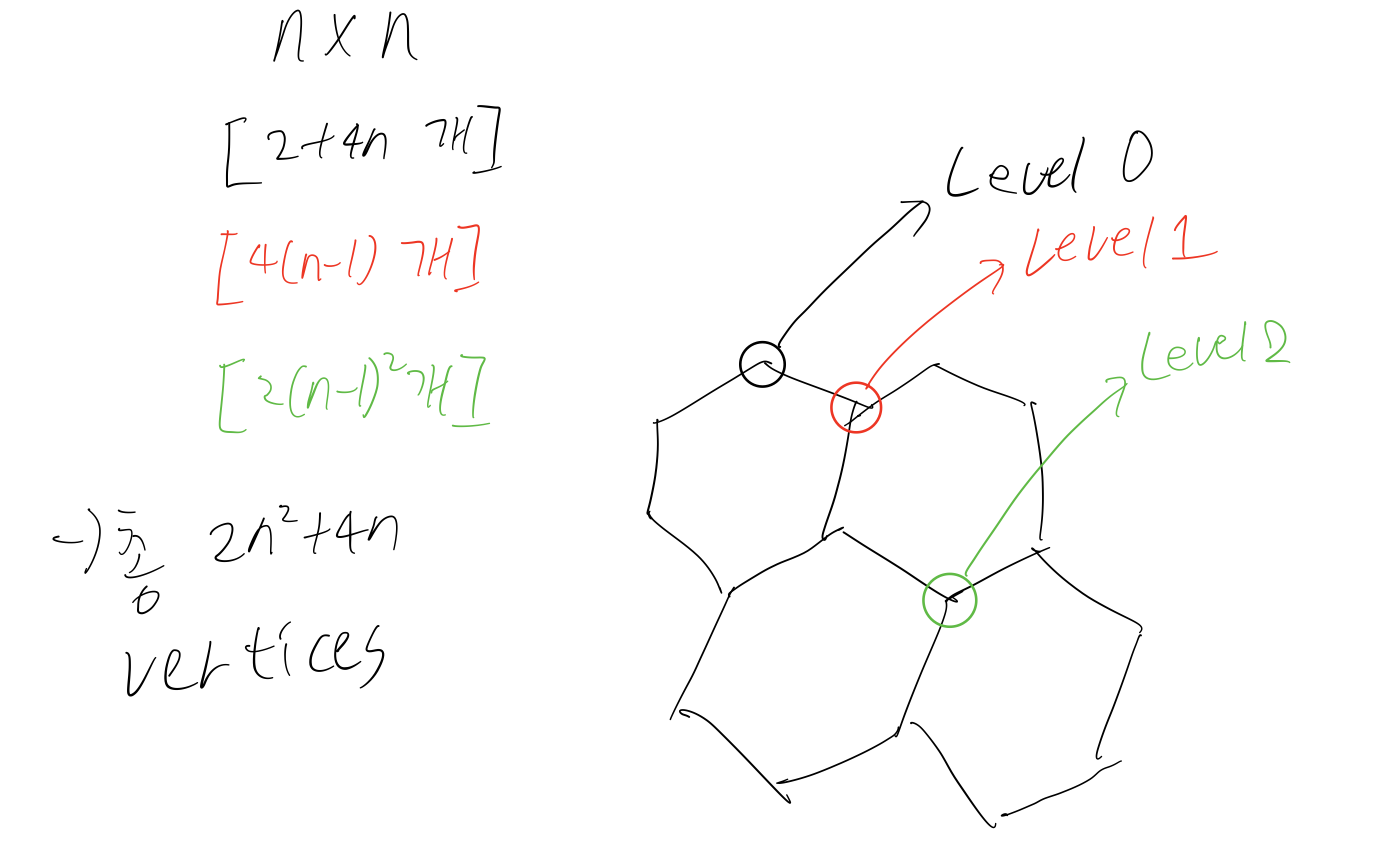 n × n
[2+4n 개]
[4(n-1) 개]
[2(n-1)² 개]
→ 총 2n²+4n
vertices
Level 0
Level 1
Level 2